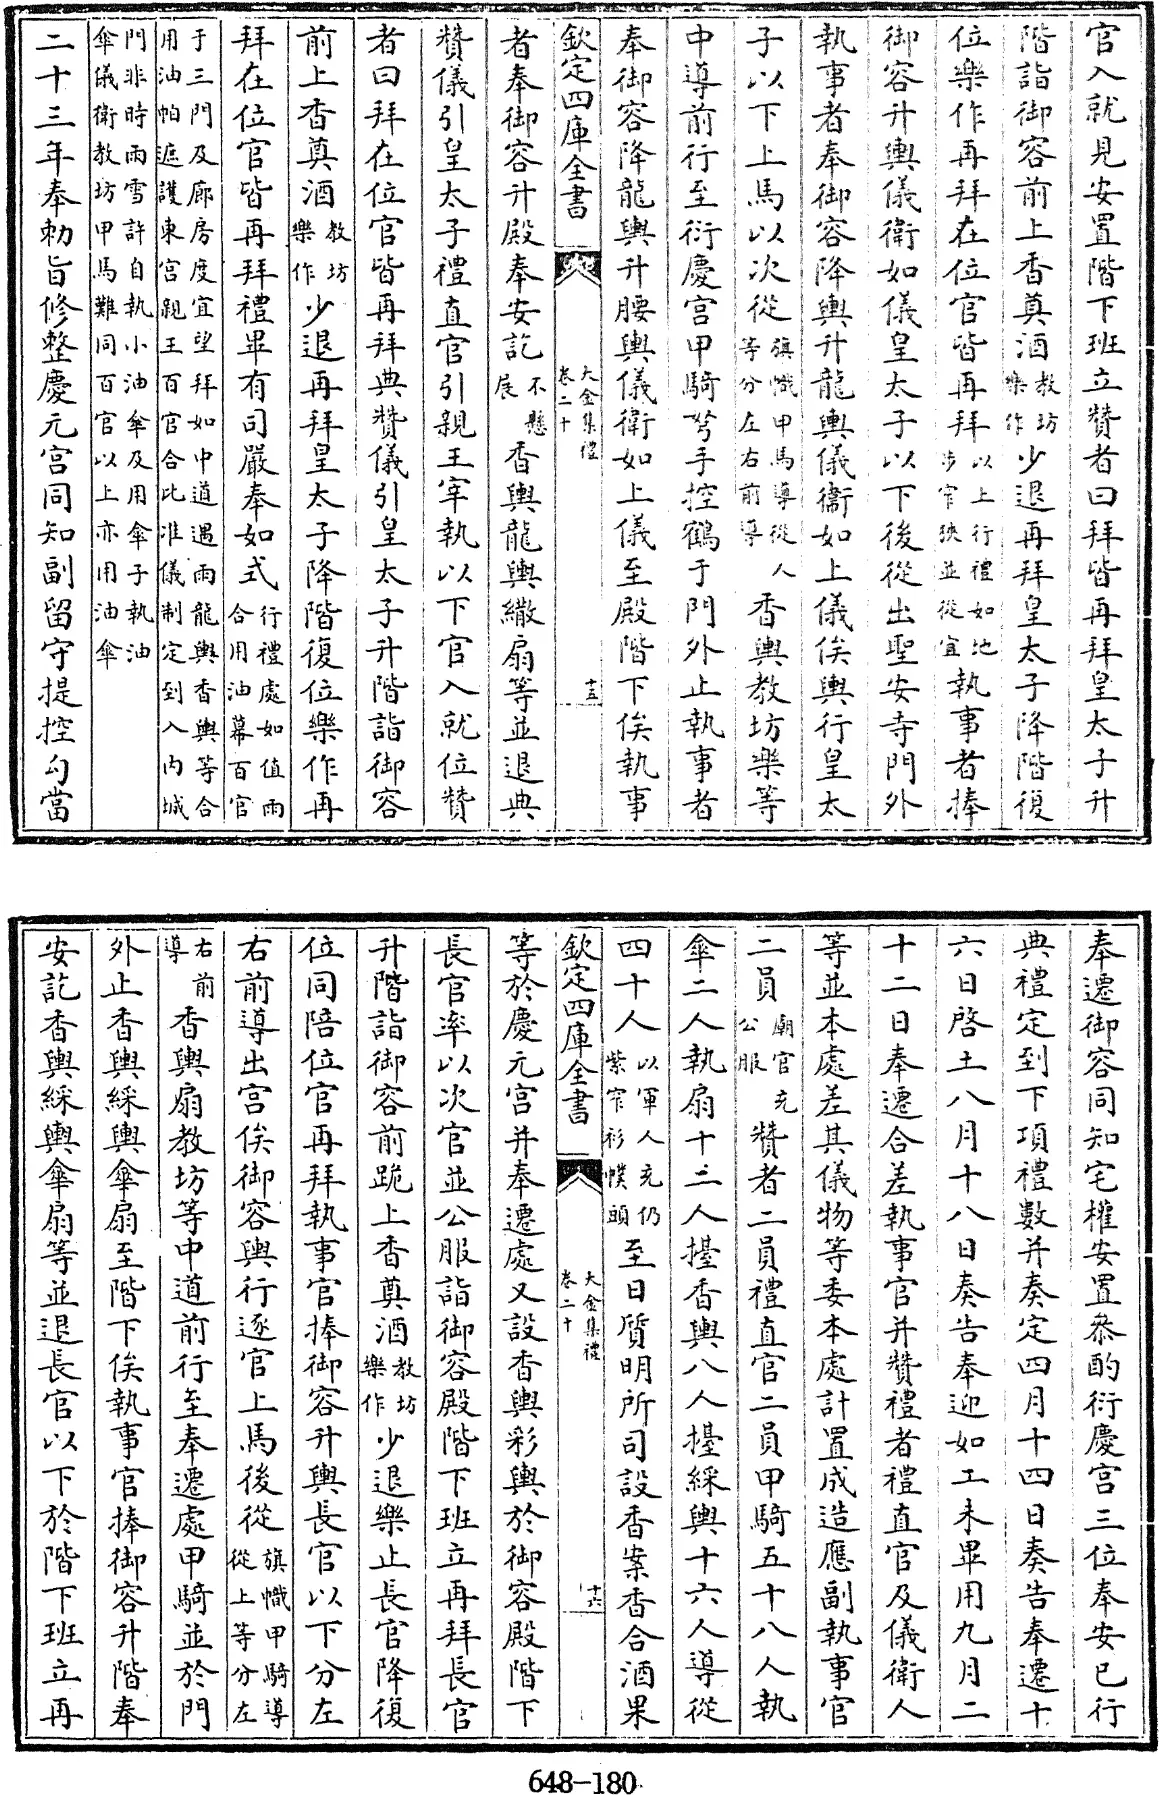 官入就見安置階下班立贊者曰拜皆再拜皇太子升
階詣御容前上香奠酒教坊樂作少退再拜皇太子降階復
位樂作再拜在位官皆再拜以上行禮如地步窄狹並從宜執事者捧
御容升輿儀衛如儀皇太子以下後從出聖安寺門外
執事者奉御容降輿升龍輿儀衛如上儀俟輿行皇太
子以下上馬以次從旗幟甲馬導從人等分左右前導香輿教坊樂等
中導前行至衍慶宮甲騎弩手控鶴于門外止執事者
奉御容降龍輿升腰輿儀衛如上儀至殿階下俟執事
欽定四庫全書
大金集禮
卷二十
十五
者奉御容升殿奉安訖不懸展香輿龍輿繖扇等並退典
贊儀引皇太子禮直官引親王宰執以下官入就位贊
者曰拜在位官皆再拜典贊儀引皇太子升階詣御容
前上香奠酒教坊樂作少退再拜皇太子降階復位樂作再
拜在位官皆再拜禮畢有司嚴奉如式行禮處如值雨合用油幕百官
于三門及廊房度宜望拜如中道遇雨龍輿香輿等合
用油帕遮護東宮親王百官合比准儀制定到入內城
門非時雨雪許自執小油傘及用傘子執油
傘儀衛教坊甲馬難同百官以上亦用油傘
二十三年奉勅旨修整慶元宮同知副留守提控勾當
奉遷御容同知宅權安置叅酌衍慶宮三位奉安已行
典禮定到下項禮數并奏定四月十四日奏告奉遷十
六日啓土八月十八日奏告奉迎如工未畢用九月二
十二日奉遷合差執事官并贊禮者禮直官及儀衛人
等並本處差其儀物等委本處計置成造應副執事官
二員廟官充公服贊者二員禮直官二員甲騎五十八人執
傘二人執扇十二人擡香輿八人擡綵輿十六人導從
四十人以軍人充仍紫窄衫幞頭至日質明所司設香案香合酒果
欽定四庫全書
大金集禮
卷二十
十六
等於慶元宮并奉遷處又設香輿彩輿於御容殿階下
長官率以次官並公服詣御容殿階下班立再拜長官
升階詣御容前跪上香奠酒教坊樂作少退樂止長官降復
位同陪位官再拜執事官捧御容升輿長官以下分左
右前導出宮俟御容輿行逐官上馬後從旗幟甲騎導從上等分左
右前導香輿扇教坊等中道前行至奉遷處甲騎並於門
外止香輿綵輿傘扇至階下俟執事官捧御容升階奉
安訖香輿綵輿傘扇等並退長官以下於階下班立再
648-180